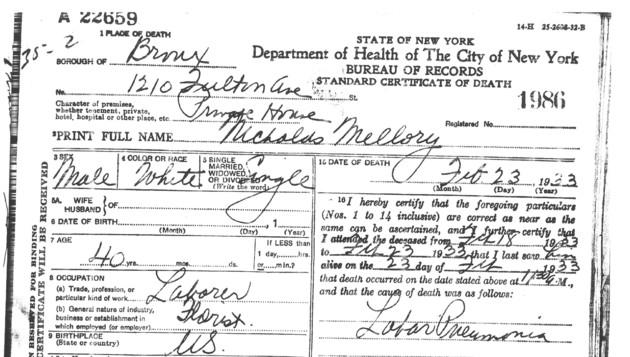 A 22659
14-H 25-2608-32-B
1 PLACE OF DEATH
STATE OF NEW YORK
35-2
BOROUGH OF Bronx
Department of Health of The City of New York
BUREAU OF RECORDS
No. 1210 Fulton Ave St.
STANDARD CERTIFICATE OF DEATH
Character of premises,
whether tenement, private,
hotel, hospital or other place, etc. Private House
1986
Registered No.
2 PRINT FULL NAME Nicholas Mellory
3 SEX
Male
4 COLOR OR RACE
White
5 SINGLE
MARRIED,
WIDOWED,
OR DIVORCED
(Write the word)
Single
5A WIFE
HUSBAND OF
6 DATE OF BIRTH
(Month) (Day) (Year)
7 AGE
40 yrs. mos. ds.
If LESS than
1 day, hrs.
or min.?
8 OCCUPATION
(a) Trade, profession, or
particular kind of work Laborer
(b) General nature of industry,
business or establishment in
which employed (or employer) Florist
9 BIRTHPLACE
(State or country) US
15 DATE OF DEATH
Feb 23 1933
(Month) (Day) (Year)
16 I hereby certify that the foregoing particulars
(Nos. 1 to 14 inclusive) are correct as near as the
same can be ascertained, and I further certify that
I attended the deceased from Feb 18 1933
to Feb 23 1933 that I last saw him
alive on the 23 day of Feb 1933
that death occurred on the date stated above at M.,
and that the cause of death was as follows:
Lobar Pneumonia
CERTIFICATE WILL BE RECEIVED
RESERVED FOR BINDING